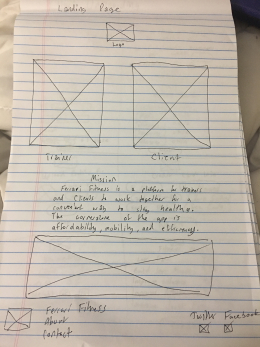 Landing Page
Logo
Trainer
Client
Mission
Ferrari Fitness is a platform for trainers
and Clients to work together for a
convenient way to stay healthy.
The cornerstone of the app is
affordability, mobility, and efficiency.
Ferrari Fitness
About
Contact
Twitter Facebook